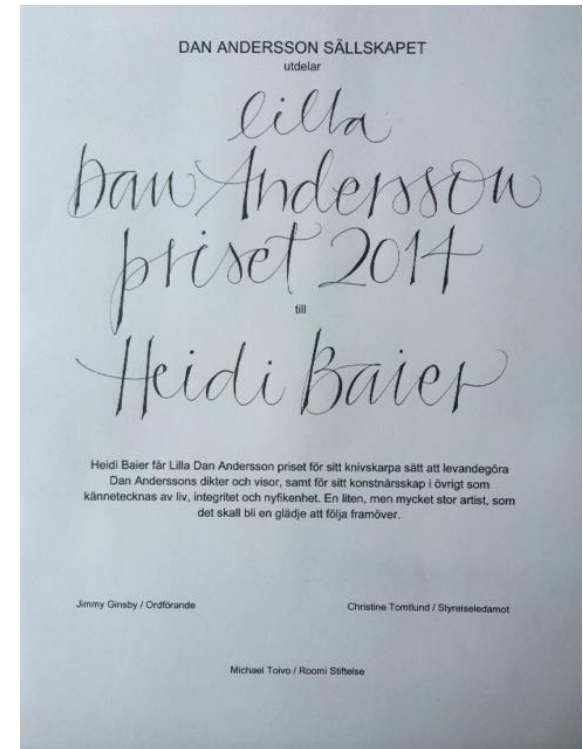 DAN ANDERSSON SÄLLSKAPET
utdelar
lilla
Dan Andersson
priset 2014
till
Heidi Baier
Heidi Baier får Lilla Dan Andersson priset för sitt knivskarpa sätt att levandegöra
Dan Anderssons dikter och visor, samt för sitt konstnärsskap i övrigt som
kännetecknas av liv, integritet och nyfikenhet. En liten, men mycket stor artist, som
det skall bli en glädje att följa framöver.
Jimmy Ginsby / Ordförande
Christine Tomtlund / Styrelseledamot
Michael Toivo / Roomi Stiftelse